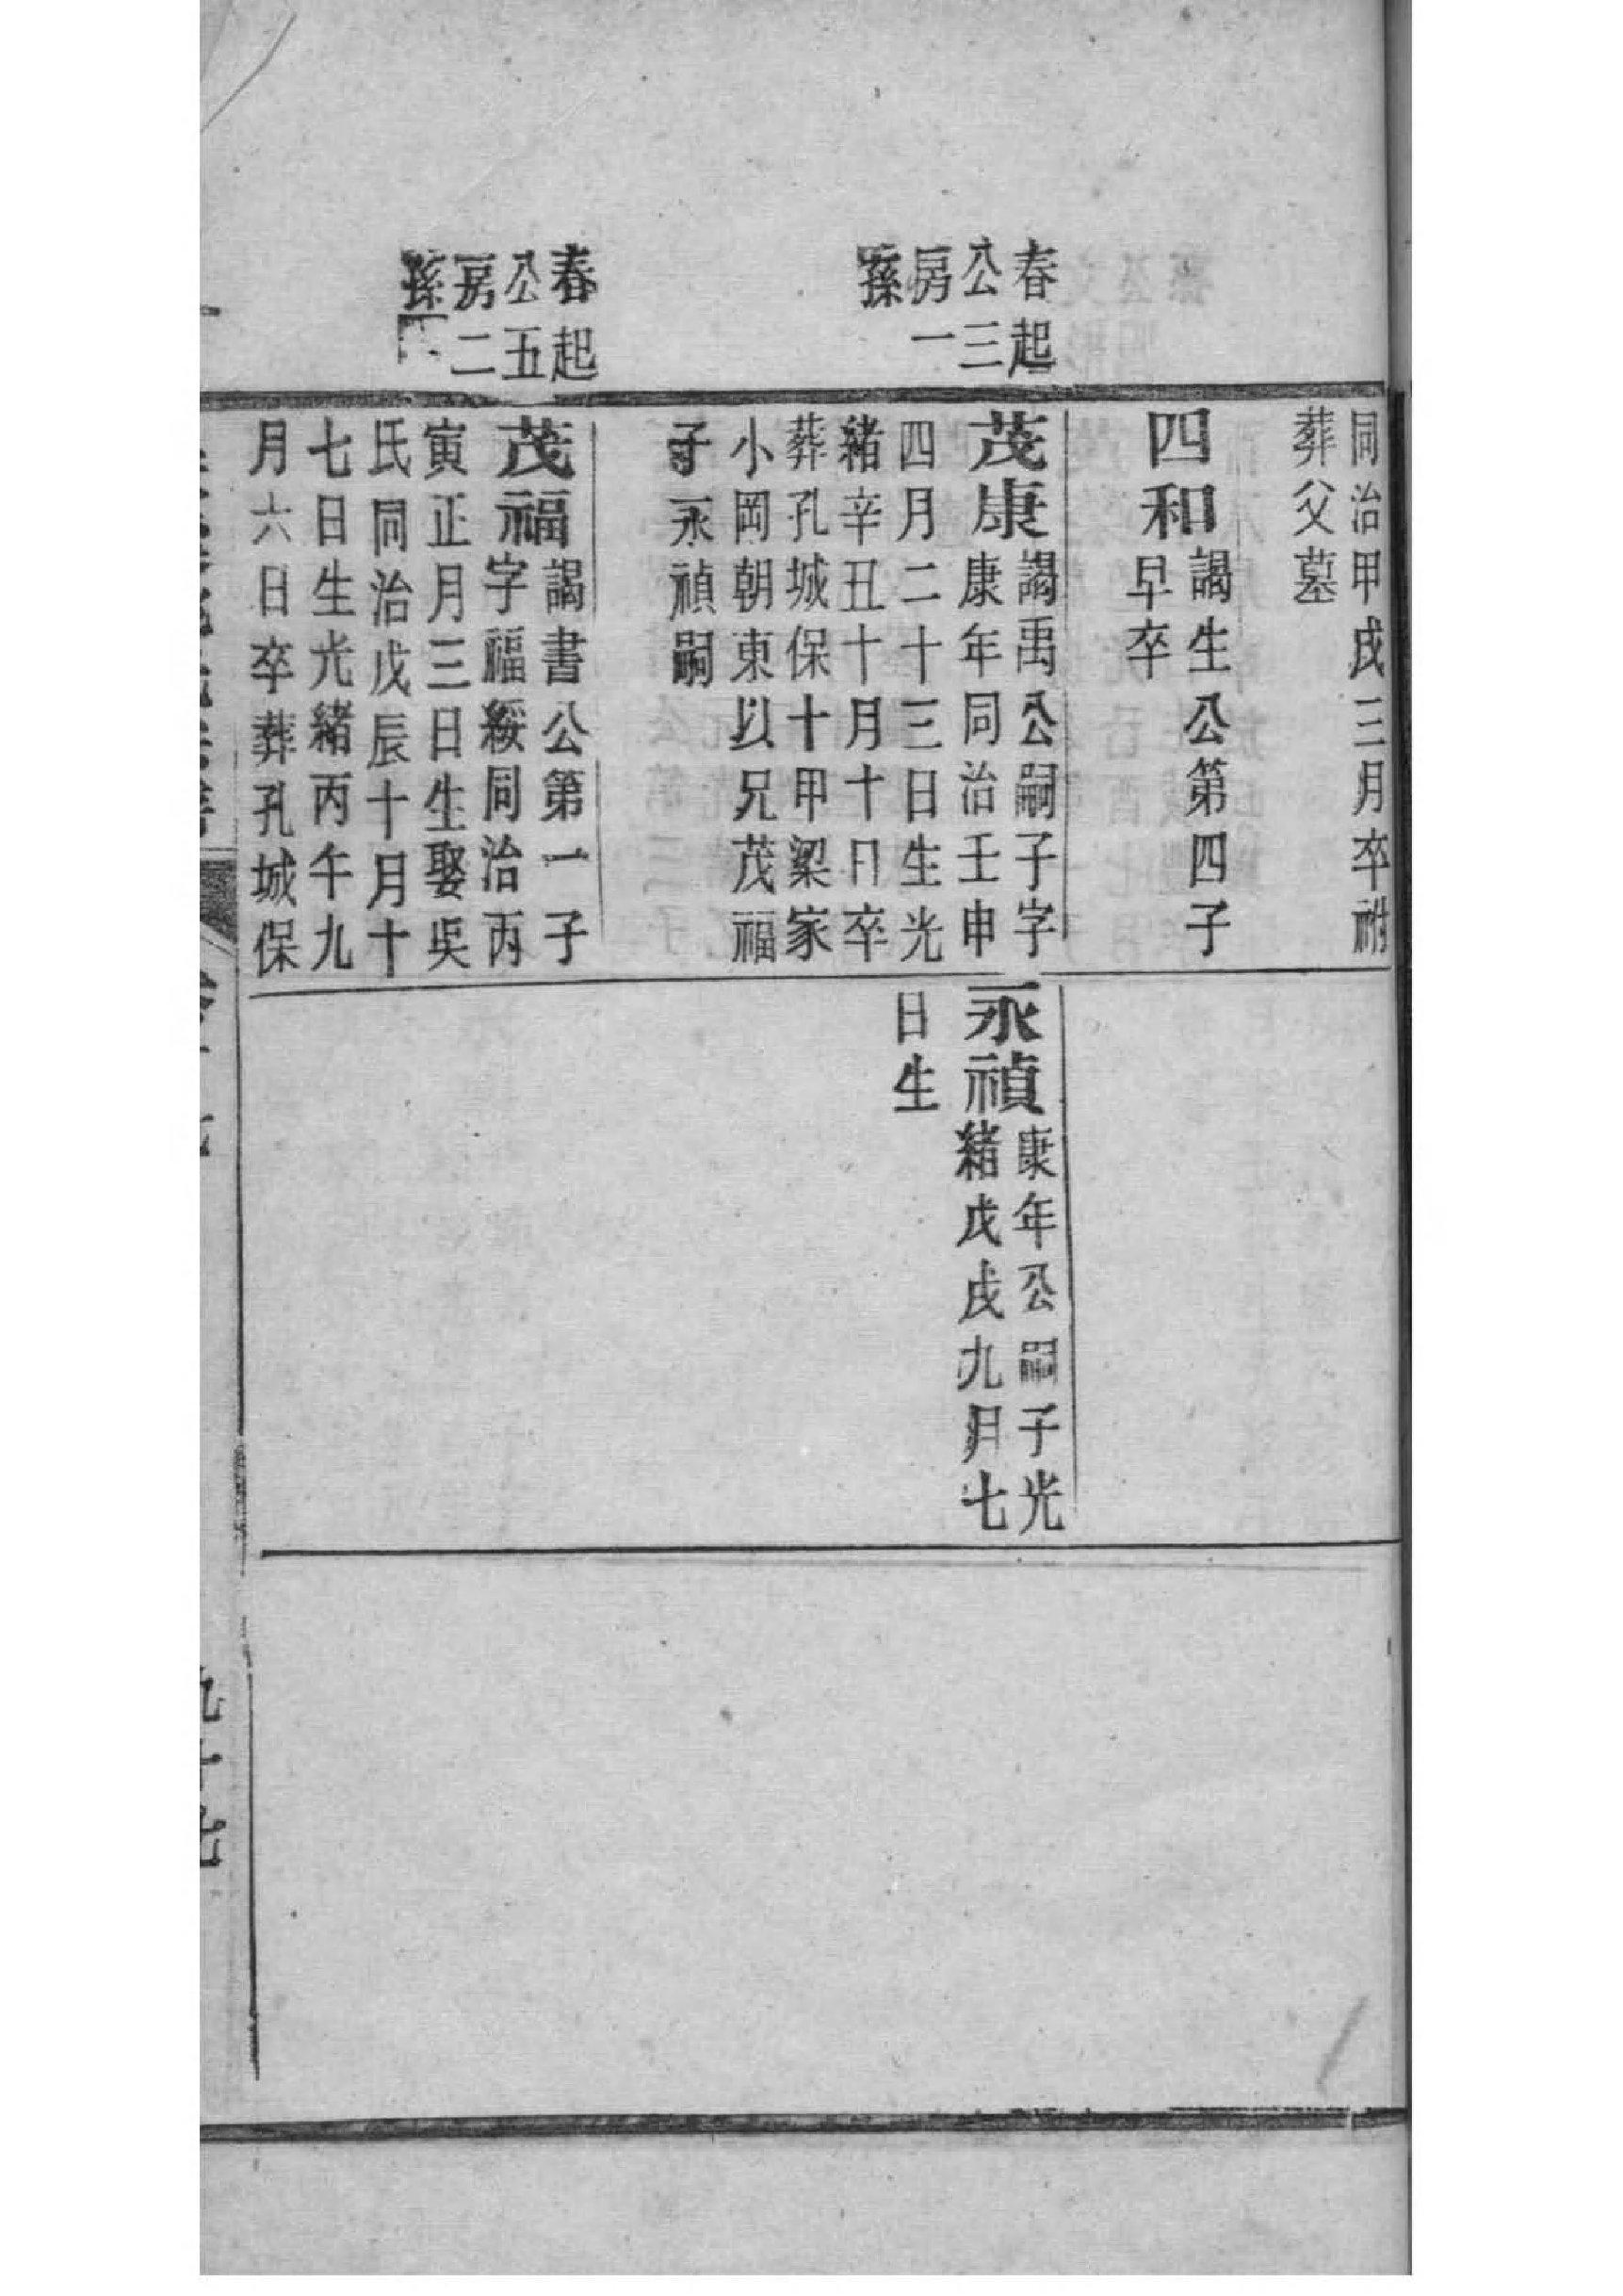 同治甲戌三月卒祔
葬父墓
四和
謁生公第四子
早卒
春起
公三
房一
孫
茂康
謁禹公嗣子字
康年同治壬申
四月二十三日生光
緒辛丑十月十日卒
葬孔城保十甲梁家
小岡朝東以兄茂福
子永禎嗣
永禎
康年公嗣子光
緒戊戌九月七
日生
春起
公五
房二
孫
茂福
謁書公第一子
字福綏同治丙
寅正月三日生娶吳
氏同治戊辰十月十
七日生光緒丙午九
月六日卒葬孔城保
九十七